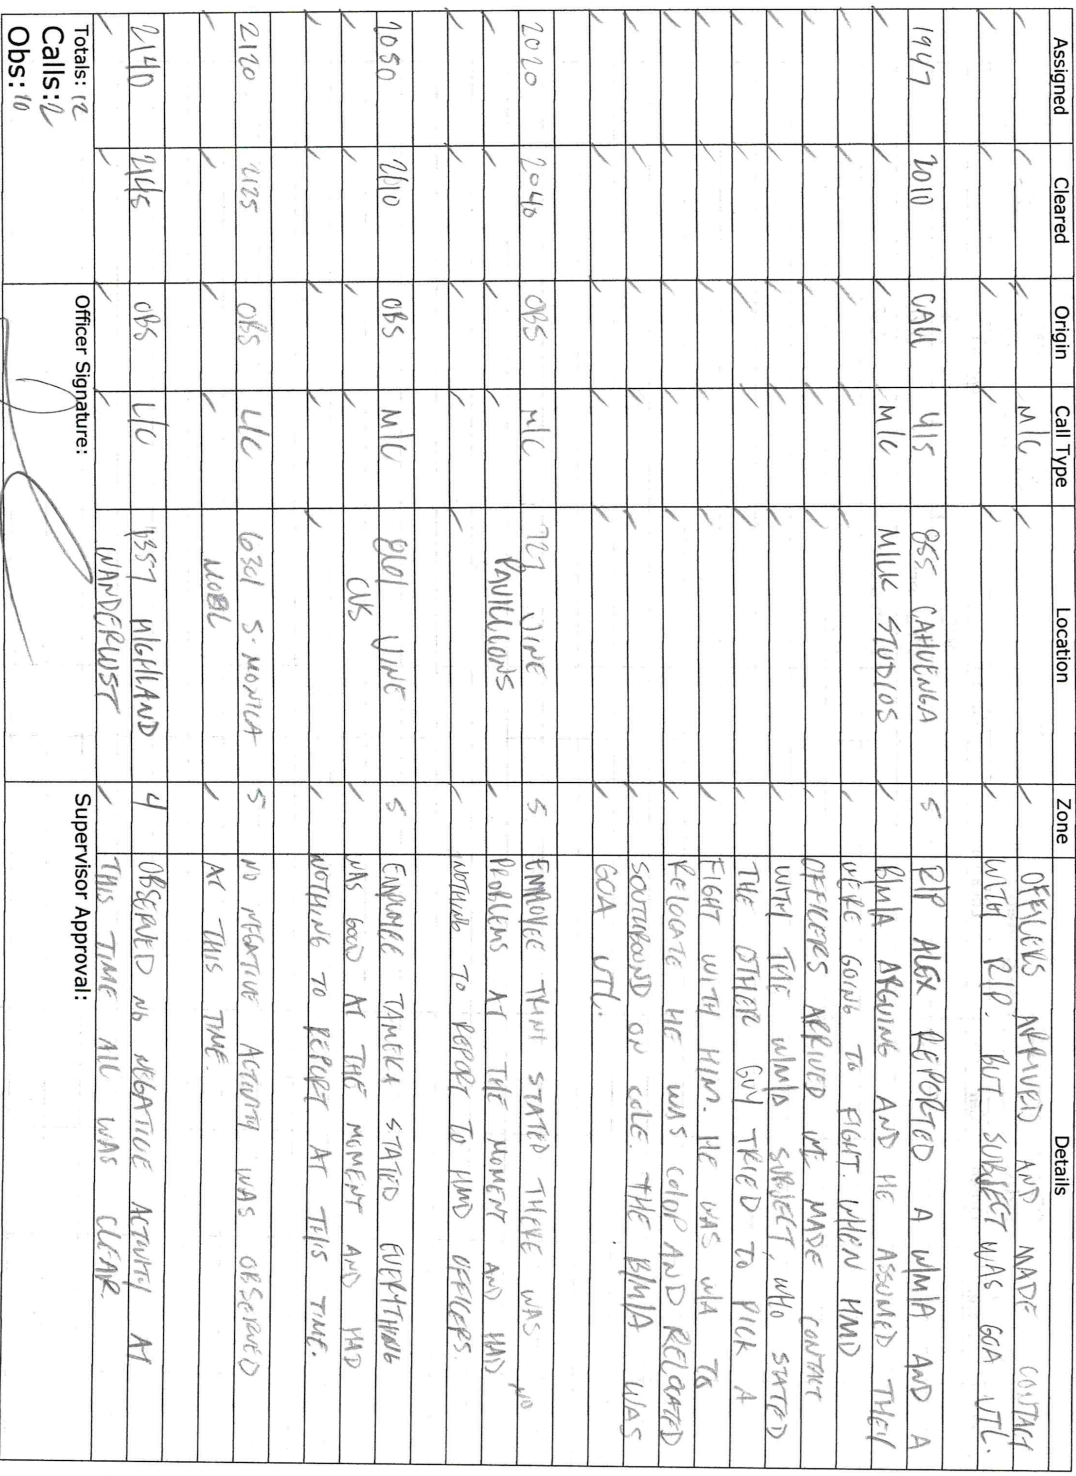 Assigned Cleared Origin Call Type Location Zone Details
M/C OFFICERS ARRIVED AND MADE CONTACT
WITH R/P. BUT SUBJECT WAS GOA UTL.
1947 2010 CALL 415 855 CAHUENGA 5 R/P ALEX REPORTED A W/M/A AND A
M/C MILK STUDIOS B/M/A ARGUING AND HE ASSUMED THEY
WERE GOING TO FIGHT. WHEN HMD
OFFICERS ARRIVED WE MADE CONTACT
WITH THE W/M/A SUBJECT, WHO STATED
THE OTHER GUY TRIED TO PICK A
FIGHT WITH HIM. HE WAS W/A TO
RELOCATE HE WAS COOP AND RELOCATED
SOUTHBOUND ON COLE. THE B/M/A WAS
GOA UTL.
2020 2040 OBS M/C 727 VINE 5 EMPLOYEE STATED THERE WAS NO
PAVILLIONS PROBLEMS AT THE MOMENT AND HAD
NOTHING TO REPORT TO HMD OFFICERS.
2050 2110 OBS M/C 861 VINE 5 EMPLOYEE TAMEKA STATED EVERYTHING
CVS WAS GOOD AT THE MOMENT AND HAD
NOTHING TO REPORT AT THIS TIME.
2120 2125 OBS L/C 6301 S. MONICA 5 NO NEGATIVE ACTIVITY WAS OBSERVED
MOBIL AT THIS TIME.
2140 2145 OBS L/C 1357 HIGHLAND 4 OBSERVED NO NEGATIVE ACTIVITY AT
WANDERLUST THIS TIME ALL WAS CLEAR.
Totals: 12 Officer Signature: Supervisor Approval:
Calls: 2
Obs: 10